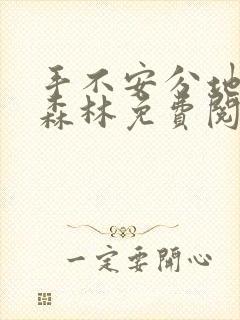 手不安分地
森林免費閱
一定要開心